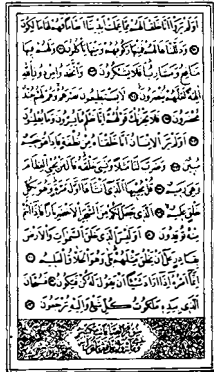 اولم يروا انا خلقنا لهم مما عملت ايدينا انعاما فهم لها مالكون
وذللناها لهم فمنها ركوبهم ومنها ياكلون ولهم فيها
منافع ومشارب افلا يشكرون واتخذوا من دون الله
الهة لعلهم ينصرون لا يستطيعون نصرهم وهم لهم جند
محضرون فلا يحزنك قولهم انا نعلم ما يسرون وما يعلنون
اولم ير الانسان انا خلقناه من نطفة فاذا هو خصيم
مبين وضرب لنا مثلا ونسي خلقه قال من يحيي العظام
وهي رميم قل يحييها الذي انشاها اول مرة وهو بكل
خلق عليم الذي جعل لكم من الشجر الاخضر نارا فاذا انتم
منه توقدون اوليس الذي خلق السموات والارض
بقادر على ان يخلق مثلهم بلى وهو الخلاق العليم
انما امره اذا اراد شيئا ان يقول له كن فيكون فسبحان
الذي بيده ملكوت كل شيء واليه ترجعون